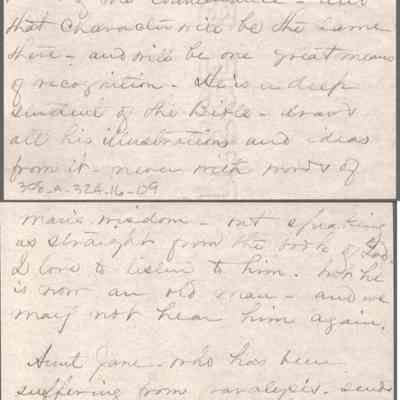 of the countenance - and
that character will be the same
there - and will be one great means
of recognition - He is a deep
student of the Bible - draws
all his illustrations and ideas
from it - never with words of
398-A-324.16-09
man's wisdom - but speaking
as straight from the book of God.
I love to listen to him. but he
is now an old man - and we
may not hear him again.
Aunt Jane - who has been
suffering from paralysis - sends